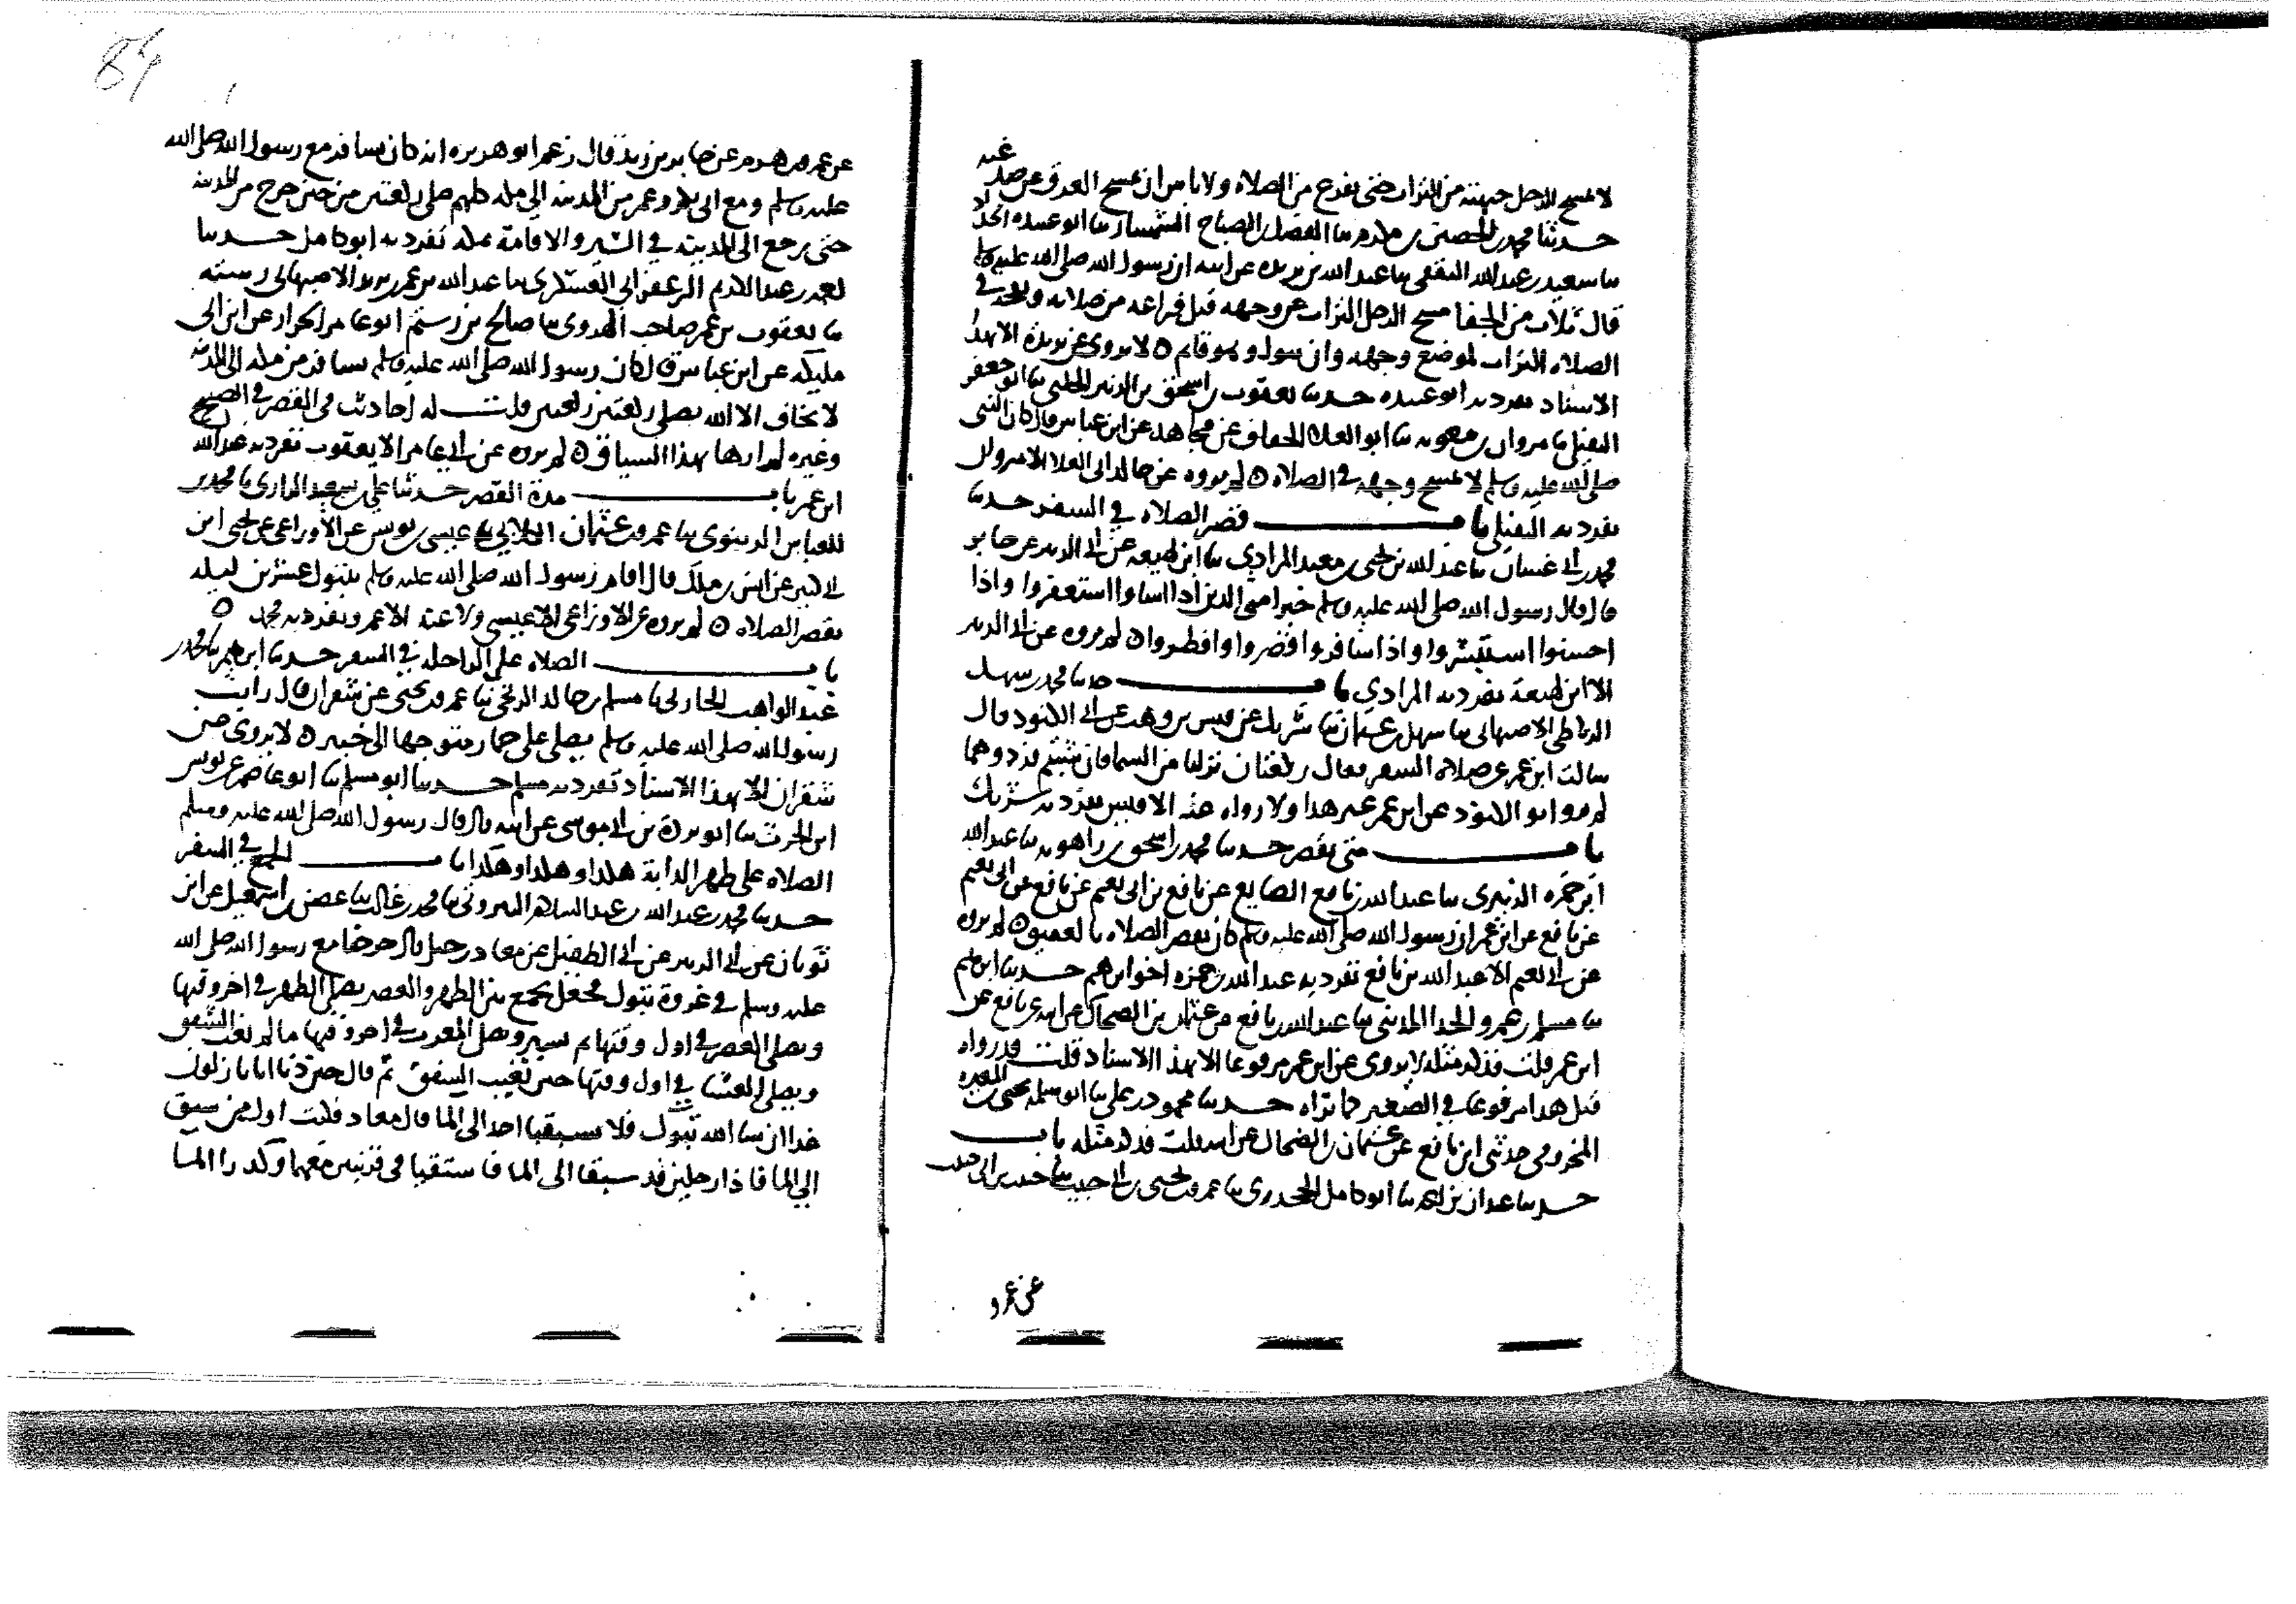 لا يمسح الرجل جبهته من التراب حتى يفرغ من الصلاه ولا باس ان يمسح العرق عن صدغيه
حدثنا محمد بن الحصين بن مكرم نا الفضل بن الصباح السمسار نا ابو عبيده الحداد
نا سعيد بن عبيد الله الثقفي نا عبد الله بن بريده عن ابيه ان رسول الله صلى الله عليه وسلم
قال ثلاث من الجفا مسح الرجل التراب عن وجهه قبل فراغه من صلاته ونفخه في
الصلاه التراب لموضع وجهه وان يبول وهو قايم ه لا يروى عن بريدة الا بهذا
الاسناد تفرد به ابو عبيده حدثنا يعقوب بن اسحق بن الزبير الحلبي نا ابو جعفر
النفيلي نا مروان بن معويه نا ابو العلا الخفاف عن مجاهد عن ابن عباس قال كان النبي
صلى الله عليه وسلم لا يمسح وجهه في الصلاه ه لم يروه عن خالد ابي العلا الا مروان
تفرد به النفيلي باب قصر الصلاه في السفر حدثنا
محمد بن ابي غسان نا عبد الله بن يحيى بن معبد المرادي نا ابن لهيعه عن ابي الزبير عن جابر
قال قال رسول الله صلى الله عليه وسلم خير امتي الذين اذا اساوا استغفروا واذا
احسنوا استبشروا واذا سافروا قصروا وافطروا ه لم يروه عن ابي الزبير
الا ابن لهيعة تفرد به المرادي باب حدثنا محمد بن سهل
الرباطي الاصبهاني نا سهل بن عثمان نا شريك عن قيس بن وهب عن ابي الكنود قال
سالت ابن عمر عن صلاة السفر فقال ركعتان نزلتا من السما فان شيتم فردوهما
لم يرو ابو الكنود عن ابن عمر غير هذا ولا رواه عنه الا قيس تفرد به شريك
باب متى يقصر حدثنا محمد بن اسحق بن راهويه نا عبد الله
ابن حمزه الزبيري نا عبد الله بن نافع الصايغ عن نافع بن ابي نعيم عن نافع عن ابي نعيم
عن نافع عن ابن عمر ان رسول الله صلى الله عليه وسلم كان يقصر الصلاه بالعقيق ه لم يروه
عن ابي نعيم الا عبد الله بن نافع تفرد به عبد الله بن حمزه اخو ابرهيم حدثنا ابرهيم
نا مسلم بن عمرو الحذا المديني نا عبد الله بن نافع عن عثمان بن الضحاك عن ابيه عن نافع عن
ابن عمر قلت فذكر مثله لا يروى عن ابن عمر مرفوعا الا بهذا الاسناد قلت قد رواه
قبل هذا مرفوعا في الصغير كما تراه حدثنا محمود بن علي نا ابو سلمه يحيى بن المغيره
المخزومي حدثني ابن نافع عن عثمان بن الضحاك عن ابيه قلت فذكر مثله باب
حدثنا عبدان بن احمد نا ابو كامل الجحدري نا عمرو بن يحيى بن ابي حبيب نا حبيب بن ابي حبيب
عن عمرو
عن عمرو بن هرم عن جابر بن زيد قال زعم ابو هريره انه كان يسافر مع رسول الله صلى الله
عليه وسلم ومع ابي بكر وعمر من المدينه الى مكه كلهم صلى ركعتين من حين خرج من المدينه
حتى يرجع الى المدينه في السير والاقامة بمكه تفرد به ابو كامل حدثنا
محمد بن عبد الكريم الزعفراني العسكري نا عبد الله بن عمر بن يزيد الاصبهاني رسته
نا يعقوب بن عمر صاحب الهروي نا صالح بن رستم ابو عامر الخزاز عن ابن ابي
مليكه عن ابن عباس قال كان رسول الله صلى الله عليه وسلم يسافر من مكه الى المدينه
لا يخاف الا الله يصلي ركعتين ركعتين قلت له احاديث في القصر في الصحيح
وغيره لم ارها بهذا السياق ه لم يروه عن ابي عامر الا يعقوب تفرد به عبد الله
ابن عمر باب مدة القصر حدثنا علي بن سعيد الرازي نا محمد بن
العباس الدينوري نا عمرو بن عثمان الكلابي نا عيسى بن يونس عن الاوزاعي عن يحيى ابن
ابي كثير عن انس بن ملك قال اقام رسول الله صلى الله عليه وسلم بتبوك عشرين ليله
يقصر الصلاه ه لم يروه عن الاوزاعي الا عيسى ولا عنه الا عمرو تفرد به محمد ه
باب الصلاه على الراحله في السفر حدثنا ابرهيم نا محمد بن
عبد الواهب الحارثي نا مسلم بن خالد الزنجي نا عمرو بن يحيى عن شقران قال رايت
رسول الله صلى الله عليه وسلم يصلي على حمار متوجها الى خيبر ه لا يروى عن
شقران الا بهذا الاسناد تفرد به مسلم حدثنا ابو مسلم نا ابو عاصم عن يونس
ابن الحرث نا ابو بردة بن ابي موسى عن ابيه قال قال رسول الله صلى الله عليه وسلم
الصلاه على ظهر الدابة هكذا وهكذا وهكذا باب الجمع في السفر
حدثنا محمد بن عبد الله بن عبد السلام البيروتي نا محمد بن غالب نا غصن بن اسمعيل عن ابن
ثوبان عن ابي الزبير عن ابي الطفيل عن معاذ بن جبل قال خرجنا مع رسول الله صلى الله
عليه وسلم في غزوة تبوك فجعل يجمع بين الظهر والعصر يصلي الظهر في اخر وقتها
ويصلي العصر في اول وقتها ثم يسير ويصلي المغرب في اخر وقتها ما لم يغب الشفق
ويصلي العشا في اول وقتها حين تغيب الشفق ثم قال حين دنا انا نازلون
غدا ان شا الله تبوك فلا يسبقنا احد الى الما قال معاذ فكنت اول من سبق
الى الما فاذا رجلين قد سبقا الى الما فاستقيا في قربتين معهما وكدرا الما